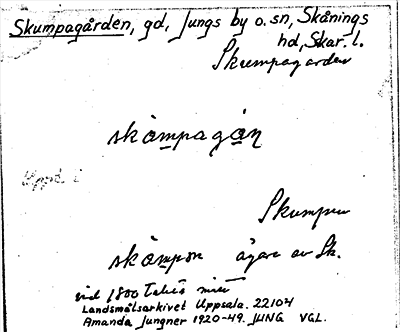 Skumpagården, gd, Jungs by o. sn, Skånings
hd, Skar. l.
Skumpagarden
skåmpagån
Uppt. i
Skumpen
skåmpen ägare av Sk.
vid 1800 talets mitt
Landsmålsarkivet Uppsala. 22104
Amanda Jungner 1920-49. JUNG VGL.